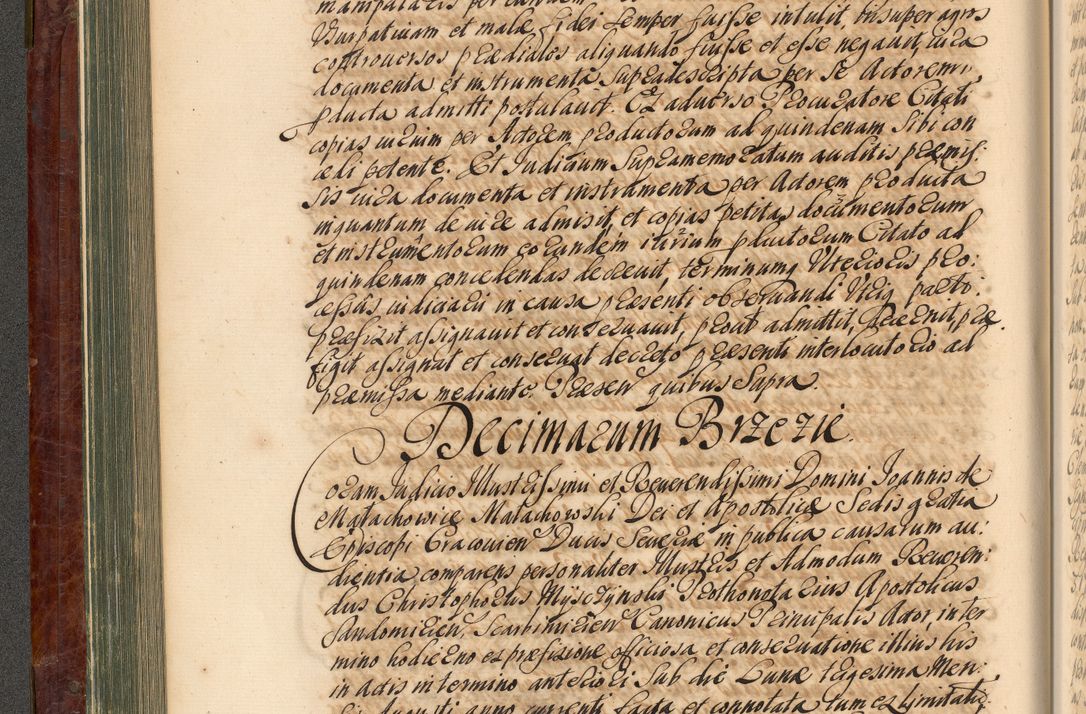 manipulatis per eundem
Usurpativam et malæ fidei semper fuisse intulit insuper agros
controversos prædiales aliquando fuisse et esse negavit, iuxa
documenta et instrumenta supradescripta per se Actorem
pducta admitti postulavit. Et adverso Procuratore Citati
copias iurium per Actorem productorum ad quindenam sibi con
cedi petente. Et Judicium supramemoratum auditis præmis:
sis iura documenta et instramenta per Actorem producta
inquantum de iure admisit, et copias petitas documentorum
et instrumentorum eorundem iurium pductorum Citato ad
quindenam concedendas decrevit, terminumq Ulterioris pro:
cessus iudiciarii in causa præsenti observandi Utriq parti
præfixit assignavit et conservavit, prout admittit, decernit, præ.
figit assignat et conservat decreto præsenti interlocutorio ad
præmissa mediante. Præsen quibus supra.
Decimarum Brzezie.
Coram Judicio Illustrissimi et Reverendissimi Domini Joannis de
Małachowice Małachowski Dei et Apostolicæ Sedis gratia
Episcopi Cracovien Ducis Severiæ in publica causarum au:
dientia comparens personaliter Illustris et Admodum Reveren:
dus Christophorus Mysczynski Prothonotarius Apostolicus
Sandomirien, Scarbimirien Canonicus Principalis Actor, in ter
mino hodierno ex præfixione officiosa et conservatione illius his
in Actis in termino anteriori sub die Lunæ trigesima Men:
sis Augusti anno currenti facta et connotata tum ex limitatio